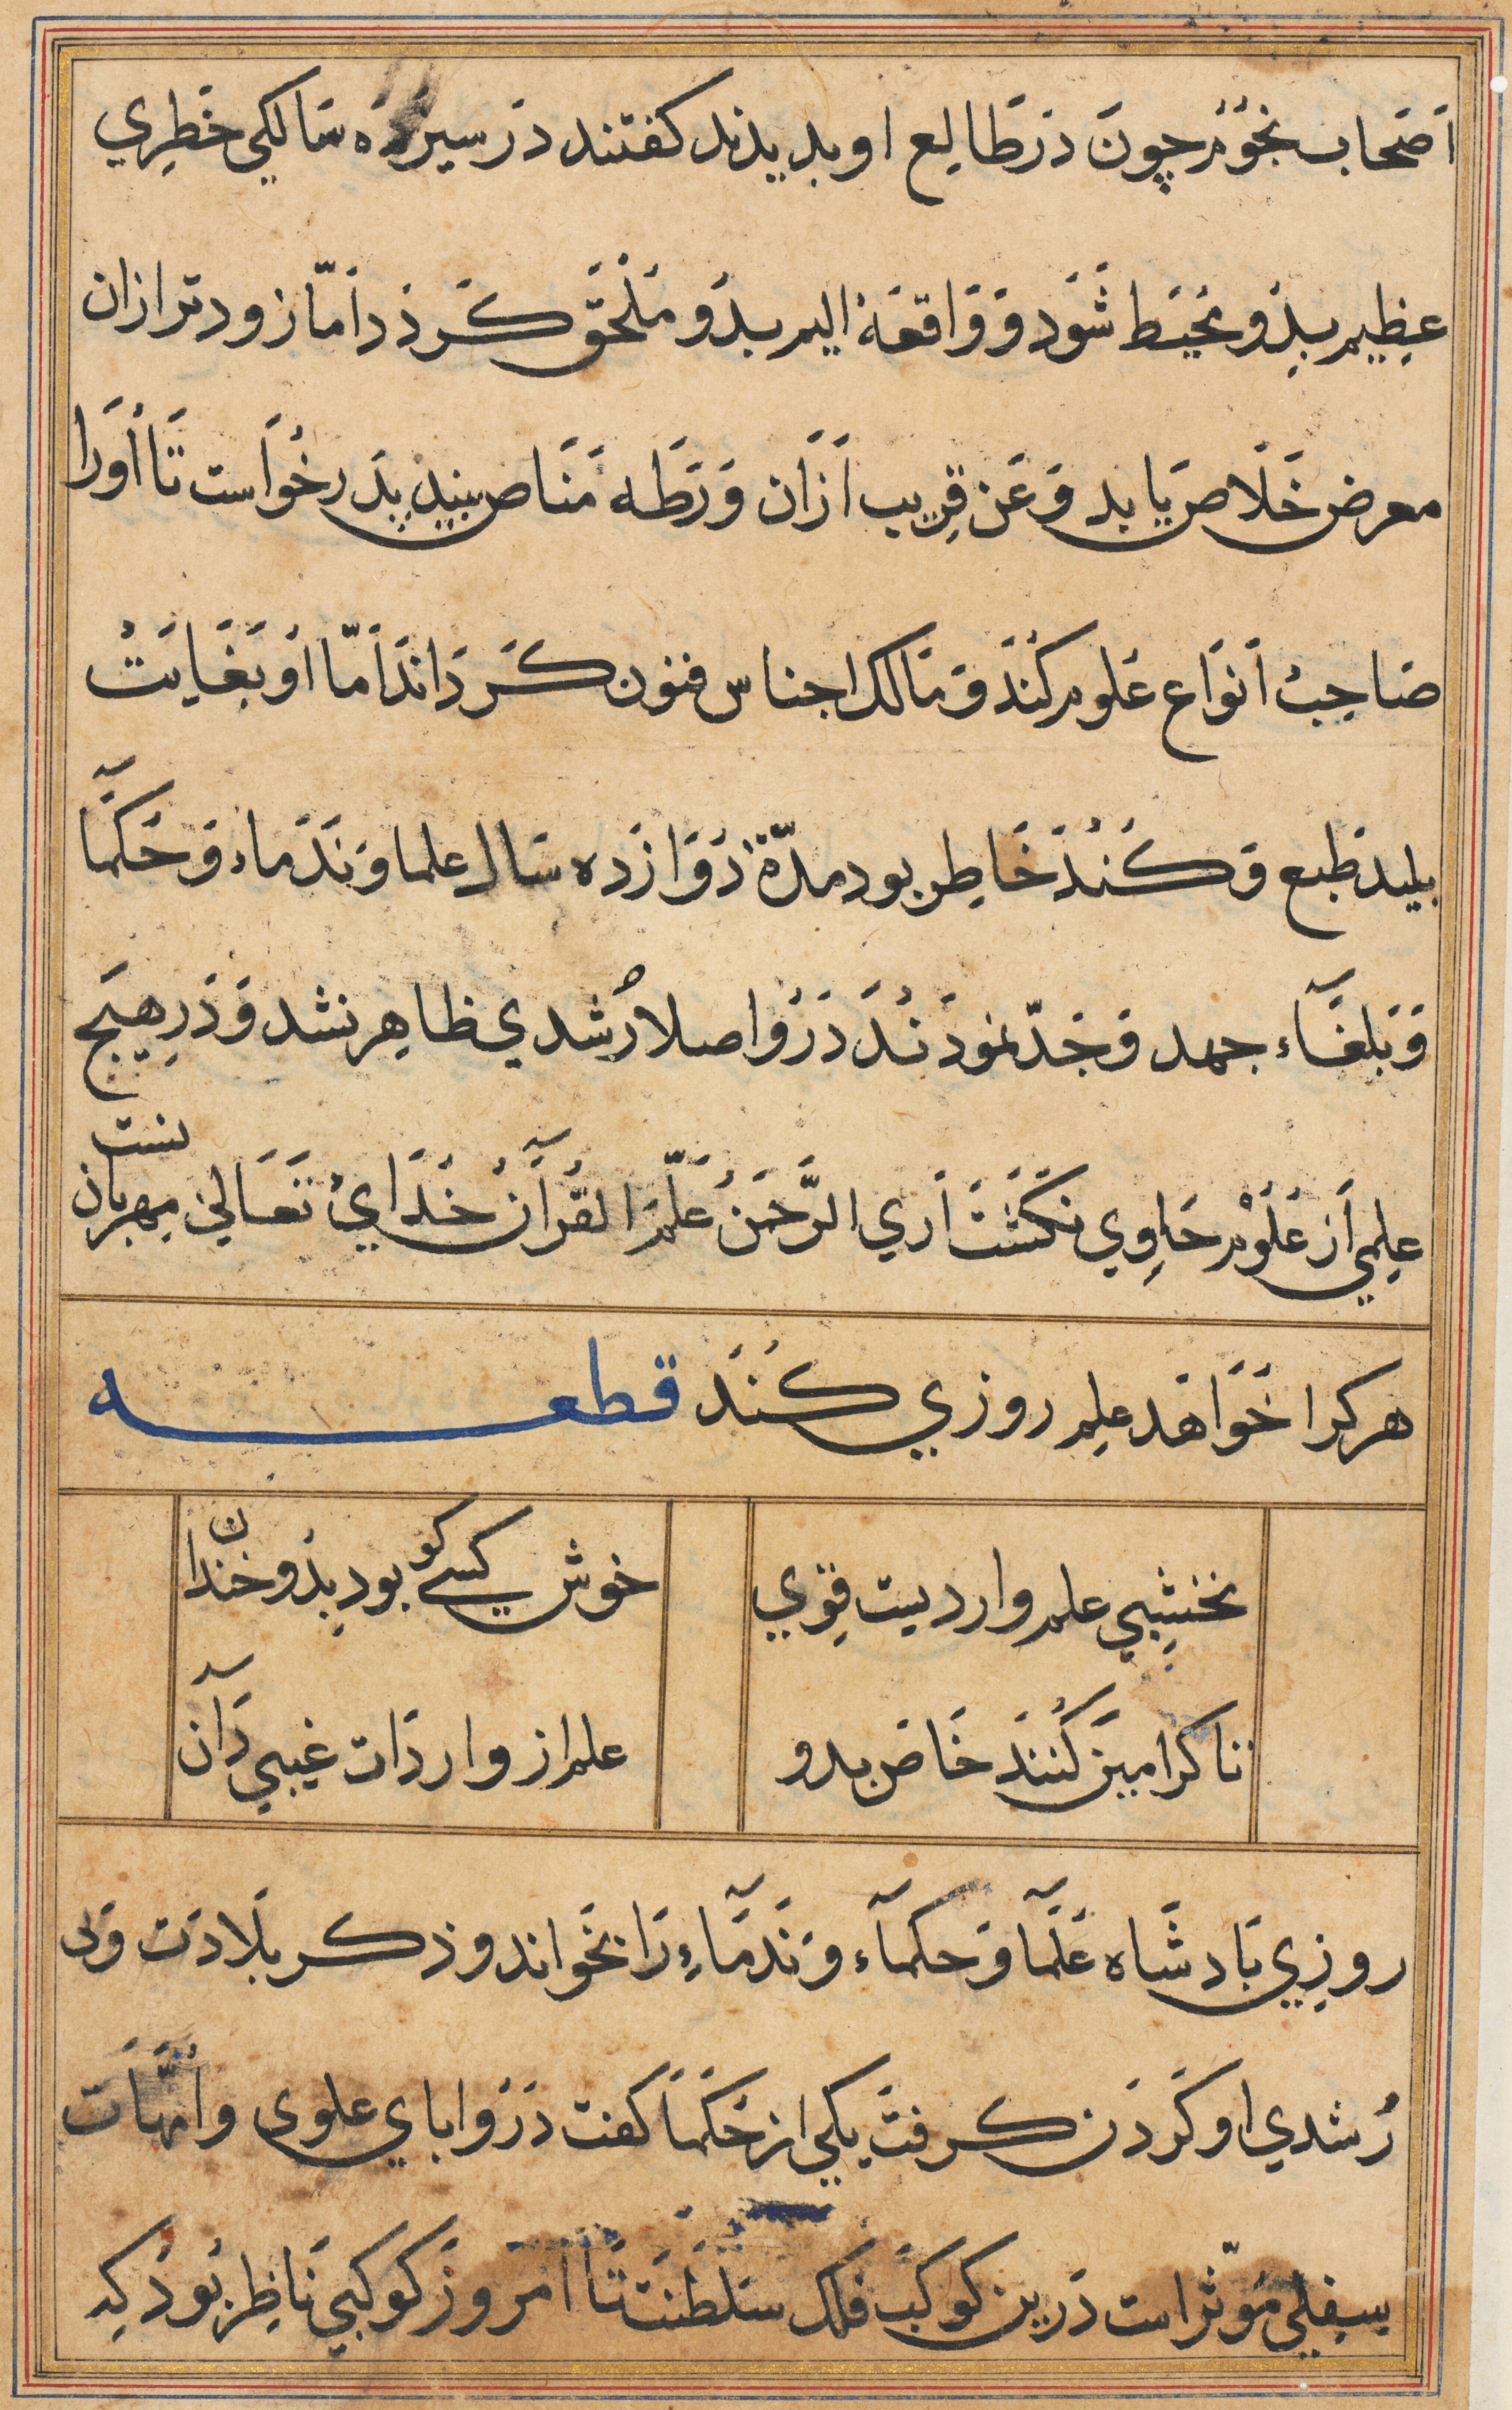 اَصَحاب نجَوُم چون دَرطَالِع او بدیدند کفتند دَر سیزدَه سَالکی خَطرِي
عظِیم بدِو محیَط شَوَد وَ وَاقعَهٔ الیم بدُو مَلْحَق کَرذد اَمّا زودتر ازان
معرض خَلَاص یَابد وَ عَن قرِیب اَزَان وَرَطَه مَنَاص بیند پدَر خُوَاست تَا اُوَرا
صَاحِبْ اَنوَاع عَلوم کُنَدْ وَ مَالک اجناس فنون کَردَانَد اَمّا اوُ بَغَایَتْ
بلید طَبع وَ کُنُدَ خَاطِر بود مدّة دَوَازَده سَال علما وَ نَدَماء وَ حَکَمآ
وَ بَلغَآء جهد وَ جَدّ نموَدَندُ دَرُو اصلا رُشدي ظاهِر نشد وَ دَرِ هیَج
علِمي اَز عَلَوُم حَاوِي نکَشَتَ اَري الرَّحمَنُ عَلّمَ القُرآنَ خُدَايُ تَعَالي مِهرَبان نست
هر کرا خَوَاهَد علِم روزي کنَد قطعه
نخشِبي علم واردیست قوِي
خوش کسي کو بود بدِو خندان
تا کرا مین کُننَد خَاص بدو
علم از واردَات غیبي دَآن
روزِي بَادشَاه عَلَمآ وَ حکمآء وَ نَدَمآءِ رَا بخَواند و ذکر بلَادَت وَ بي
رُشدي او کَردَن کرفتَ یکي از حَکَمَا کفت دَرَو اباي علوی و امُّهَات
سِفلِي مَوّثر است دَرین کوکَبَ فلک سَلطَنَت تَا امَروزَ کوکبي نَاظِر بَوُدَ کِه